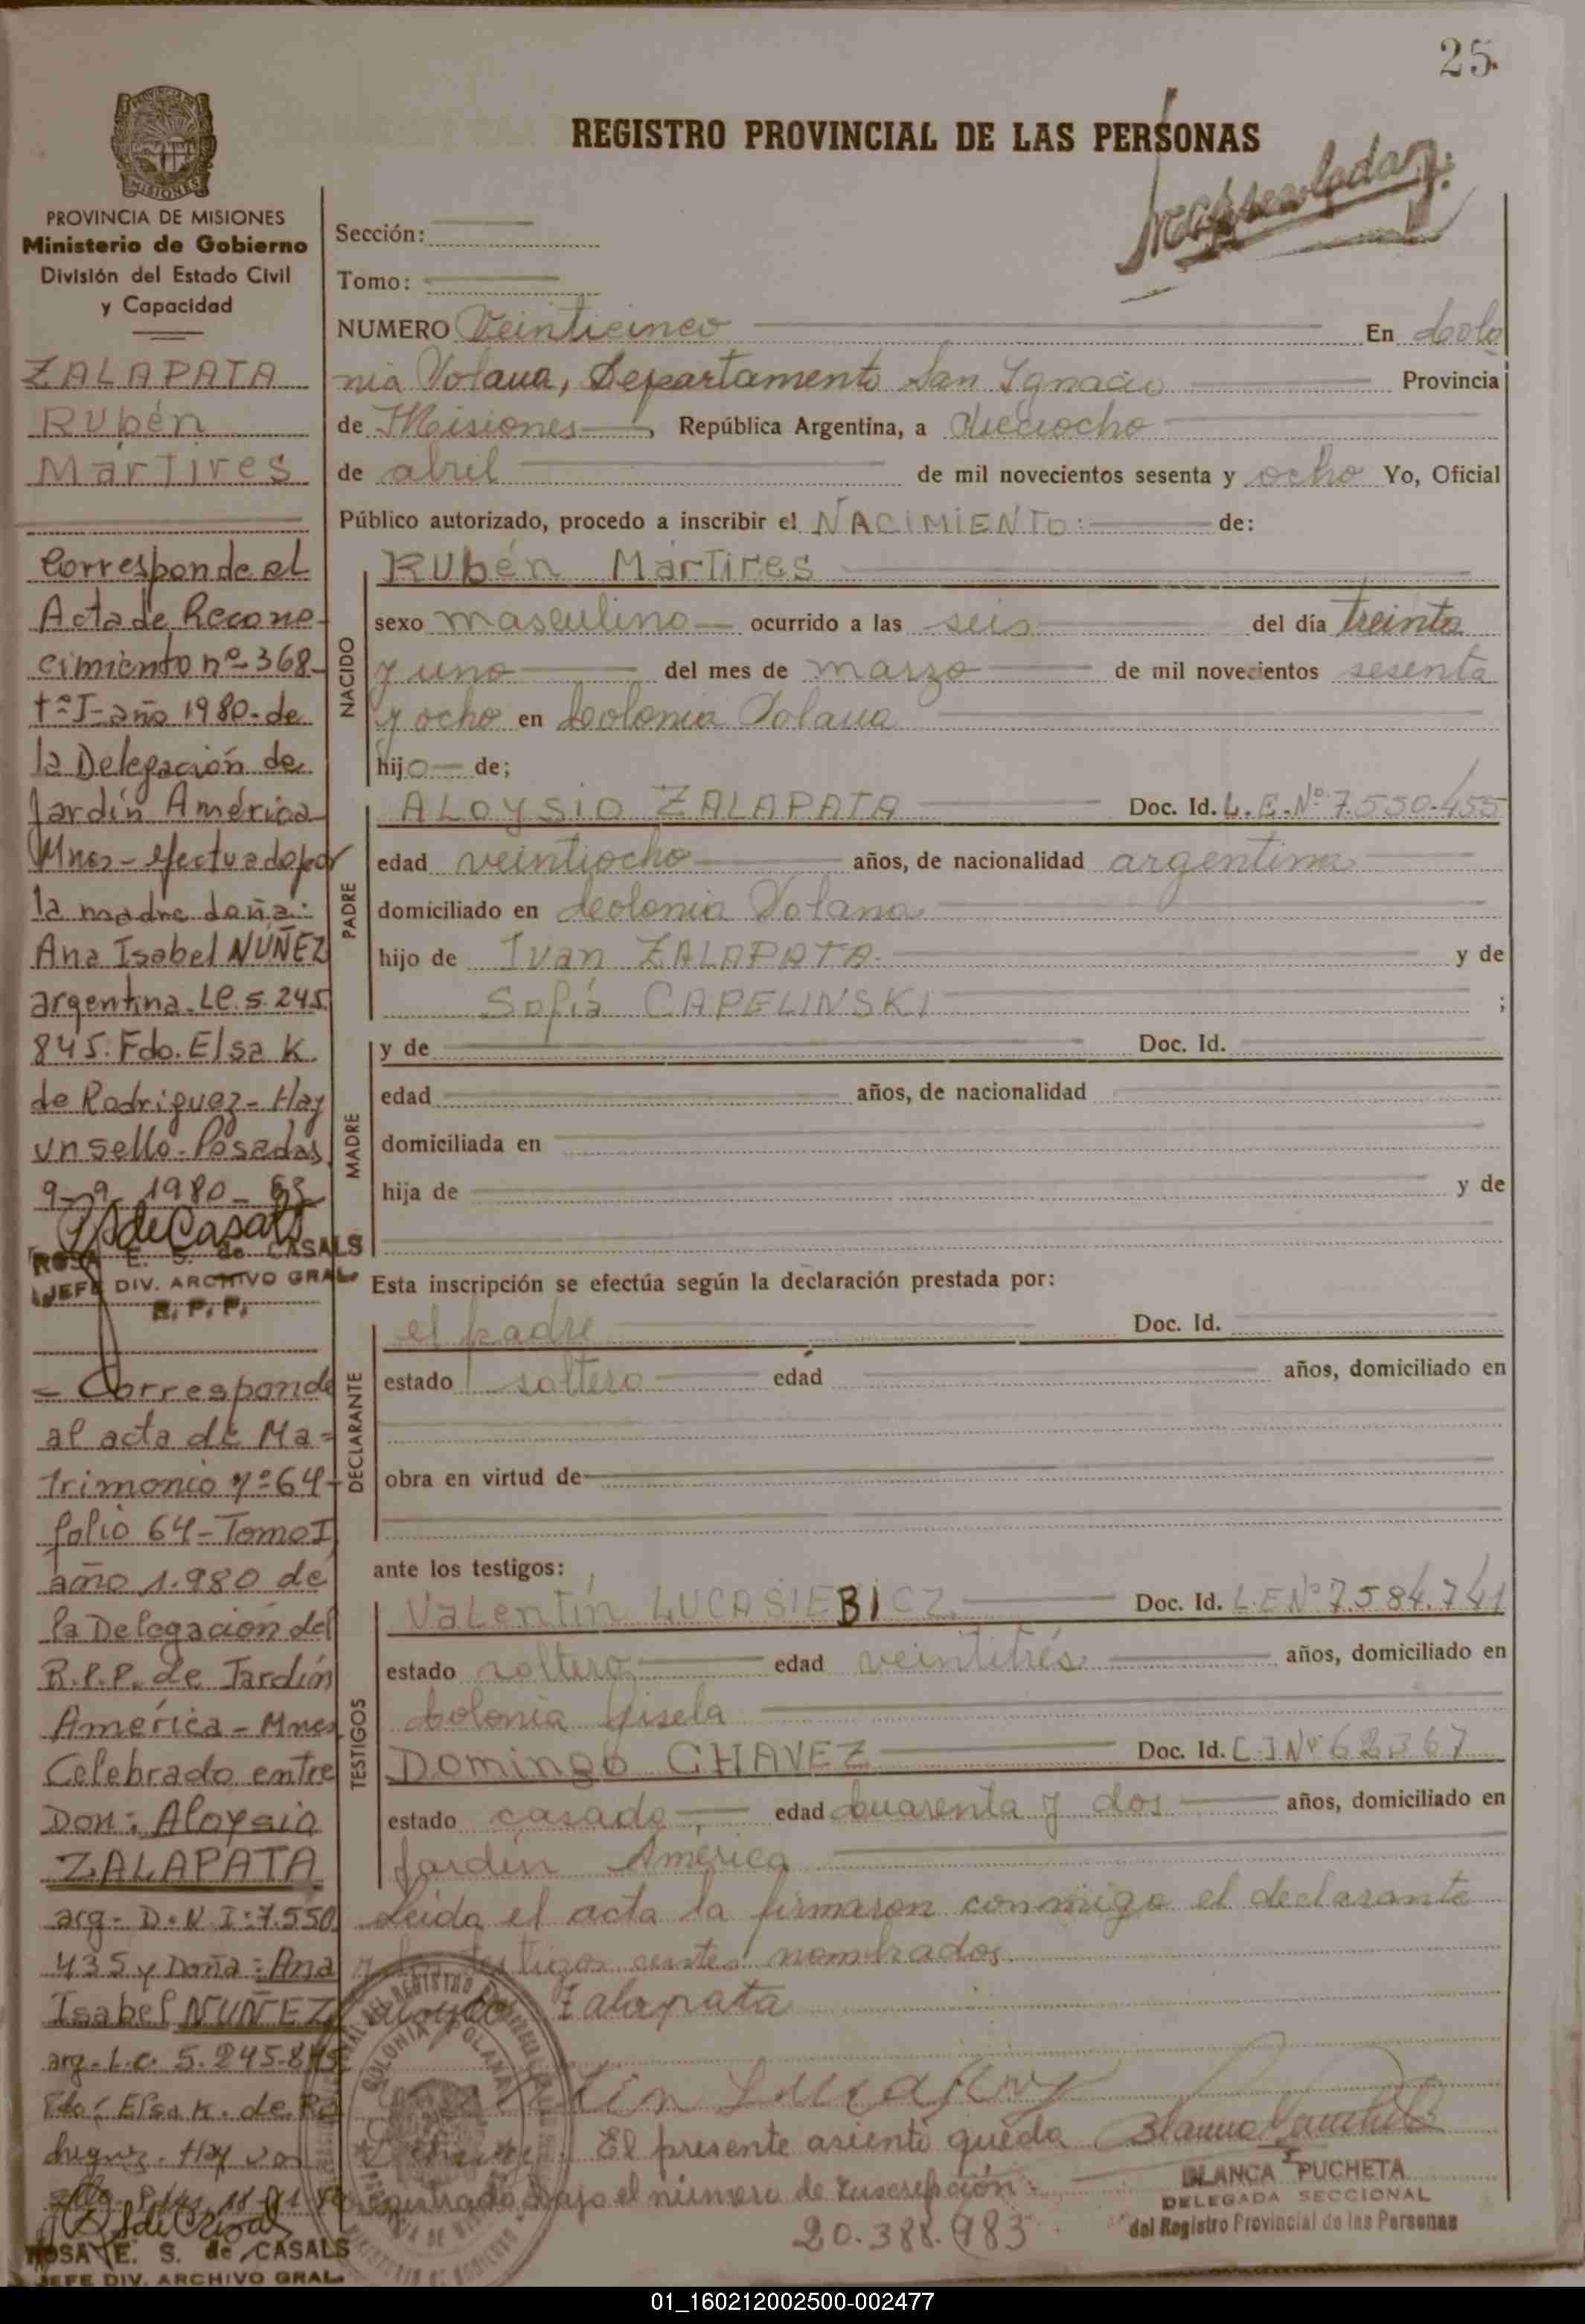 25.
REGISTRO PROVINCIAL DE LAS PERSONAS
MISIONES
PROVINCIA DE MISIONES
Ministerio de Gobierno
División del Estado Civil
y Capacidad
ZALAPATA
Rubén
Mártires
Corresponde al
Acta de Recono-
cimiento nº 368-
tº I-año 1980-de
la Delegación de
Jardín América
Mnes-efectuado por
la madre doña:
Ana Isabel NÚÑEZ
argentina. LC. 5.245.
845. Fdo. Elsa K.
de Rodriguez-Hay
un sello-Posadas
9-9-1980-
ROSA E. S. de CASALS
JEFE DIV. ARCHIVO GRAL.
R. P. P.
- Corresponde
al acta de Ma-
trimonio nº 64-
folio 64-Tomo I
año 1.980 de
la Delegación del
R.P.P. de Jardín
América-Mnes
Celebrado entre
Don: Aloysio
ZALAPATA
arg- D.N.I: 7.550.
435 y Doña: Ana
Isabel NUÑEZ
arg-L.c. 5.245.845
Fdo: Elsa K. de Ro
driguez. Hay un
sello
ROSA E. S. de CASALS
JEFE DIV. ARCHIVO GRAL.
Sección:
Tomo:
NUMERO Veinticinco En Colo
nia Polana, Departamento San Ignacio Provincia
de Misiones, República Argentina, a dieciocho
de abril de mil novecientos sesenta y ocho Yo, Oficial
Público autorizado, procedo a inscribir el NACIMIENTO: de:
NACIDO
Rubén Mártires
sexo masculino ocurrido a las seis del día treinta
y uno del mes de marzo de mil novecientos sesenta
y ocho en Colonia Polana
hijo de;
PADRE
ALOYSIO ZALAPATA Doc. Id. L.E.Nº 7.550.455
edad veintiocho años, de nacionalidad argentina
domiciliado en Colonia Polana
hijo de Ivan ZALAPATA y de
Sofía CAPELINSKI ;
MADRE
y de Doc. Id.
edad años, de nacionalidad
domiciliada en
hija de y de
Esta inscripción se efectúa según la declaración prestada por:
DECLARANTE
el padre Doc. Id.
estado soltero edad años, domiciliado en
obra en virtud de
ante los testigos:
TESTIGOS
Valentín LUCASIEBICZ Doc. Id. L.E Nº 7.584.741
estado soltero edad veintitrés años, domiciliado en
Colonia Gisela
Domingo CHAVEZ Doc. Id. C.I Nº 62367
estado casado, edad cuarenta y dos años, domiciliado en
Jardín América
Leida el acta la firmaron conmigo el declarante
y los testigos antes nombrados.
Aloysio Zalapata
COLONIA POLANA
El presente asiento queda
registrado bajo el número de inscripción:
20.388.983
BLANCA PUCHETA
DELEGADA SECCIONAL
del Registro Provincial de las Personas
01_160212002500-002477